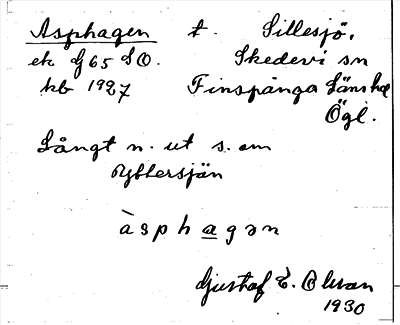 Asphagen t. Sillesjö,
ek G65 SO. Skedevi sn
kb 1927 Finspånga Läns hd
Ögl.
Långt n. ut s. om
Ybbersjän
àsphagən
Gustaf E. Olsson
1930